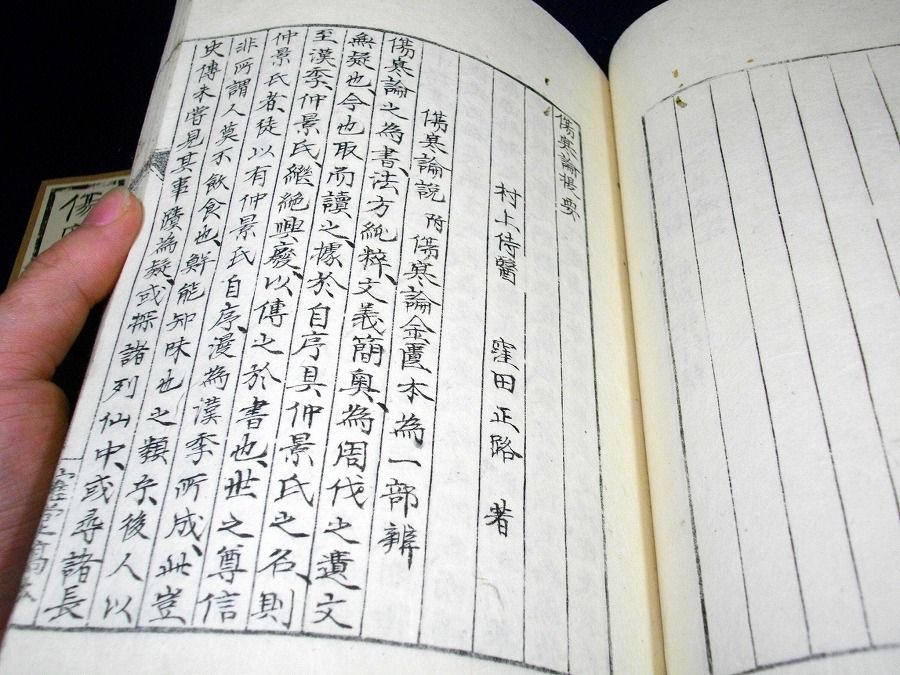 傷寒論提要
村上侍醫 窪田正路 著
傷寒論説 附傷寒論金匱本為一部辨
傷寒論之為書、法方純粹、文義簡奥、為周代之遺文
無疑也、今也取而讀之、據於自序具仲景氏之名、則
至漢季、仲景氏、繼絶興廢、以傳之於書也、世之尊信
仲景氏者、徒以有仲景氏自序、漫為漢季所成、此豈
非所謂人莫不飲食也、鮮能知味也之類乎、後人以
史傳未嘗見其事蹟為疑、或探諸列仙中、或尋諸長
傷